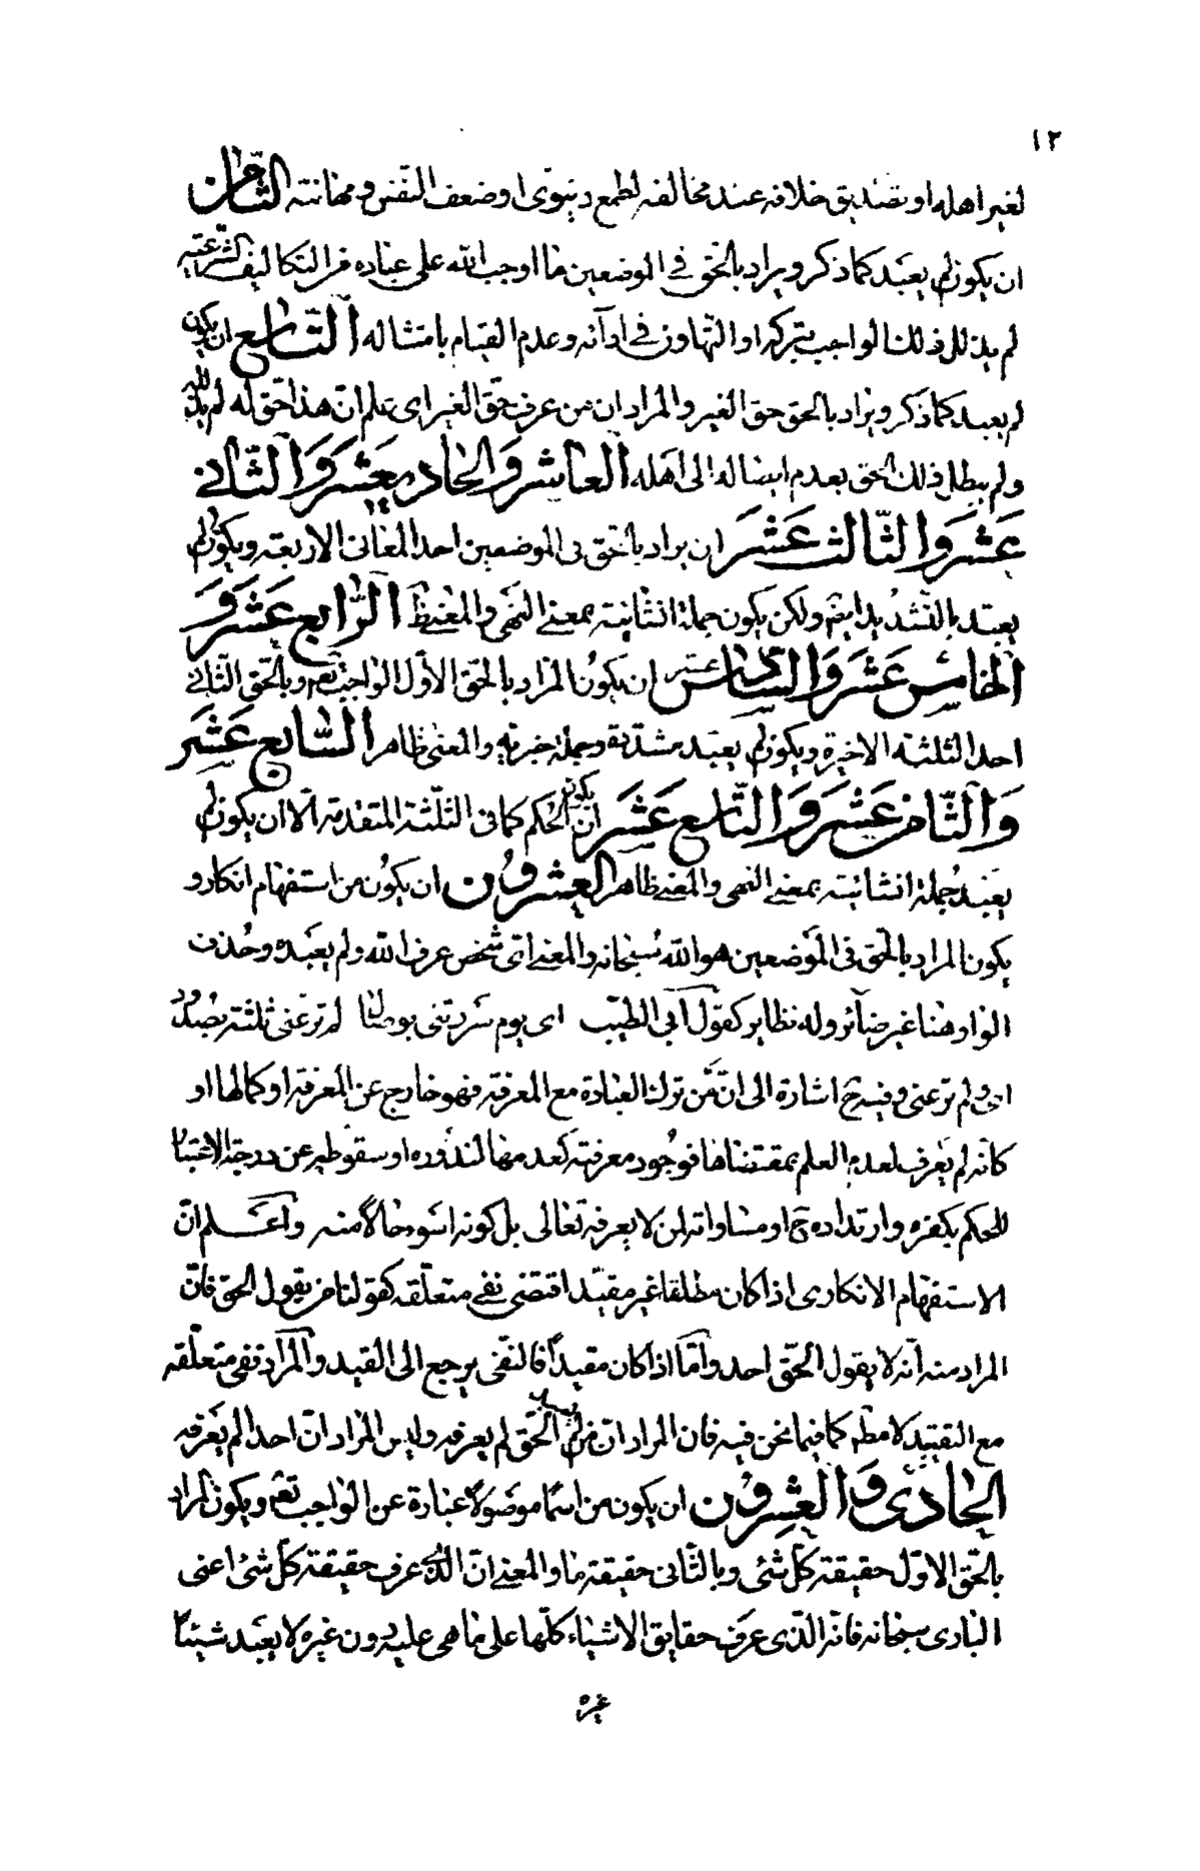 ١٢
لغير اهله او تصديق خلافه عند مخالفه لطمع دنيوى او ضعف النفس ومهانته الثامن
ان يكون لم يعبد كما ذكر ويراد بالحق فى الموضعين ما اوجب الله على عباده من التكاليف الشرعية
لم يذلل ذلك الواجب بتركه او التهاون فى ادآئه وعدم القيام بامتثاله التاسع ان يكون
لم يعبد كما ذكر ويراد بالحق حق الغير والمراد ان من عرف حق الغير اى علم ان هذا حق له لم يذلله
ولم يبطل ذلك الحق بعدم ايصاله الى اهله العاشر والحاديعشر والثانى
عشر والثالث عشر ان يراد بالحق فى الموضعين احد المعانى الاربعة ويكون لم
يعبد بالتشديد ايضم ولكن يكون جملة انشائية بمعنى النهى والمعنى ظ الرابع عشر و
الخامس عشر والسادس عشر ان يكون المراد بالحق الاول الواجب تعم وبالحق الثانى
احد الثلثه الاخيرة ويكون لم يعبد مشدّدة وجملة خبرية والمعنى ظاهر السابع عشر
والثامن عشر والتاسع عشر ان يكون الحكم كما فى الثلثة المتقدمة الا ان يكون لم
يعبد جملة انشائية بمعنى النهى والمعنى ظاهر العشرون ان يكون من استفهام انكار و
يكون المراد بالحق فى الموضعين هو الله سبحانه والمعنى اى شخص عرف الله ولم يعبده وحذف
الواو هنا غير ضائر وله نظاير كقول ابى الطيب اى يوم سررتنى بوصال لم ترعنى ثلثة بصدود
اى ولم ترعنى وفيه ح اشارة الى ان من ترك العبادة مع المعرفة فهو خارج عن المعرفة او كمالها او
كانه لم يعرف لعدم العلم بمقتضاها فوجود معرفته كعدمها لندوره او سقوطه عن درجة الاعتبار
للحكم بكفره وارتداده ح او مساواته لمن لا يعرفه تعالى بل كونه اسوء حالاً منه واعلم ان
الاستفهام الانكارى اذا كان مطلقا غير مقيد اقتضى نفى متعلقه كقولنا من يقول الحق فان
المراد منه انه لا يقول الحق احد واما اذا كان مقيداً فالنفى يرجع الى القيد والمراد نفى متعلقه
مع التقييد لا مطم كما فيما نحن فيه فان المراد ان من لم الحق لم يعرفه وليس المراد ان احدا لم يعرفه
الحادى والعشرون ان يكون من اسما موصولا عبارة عن الواجب تعم ويكون المراد
بالحق الاول حقيقة كل شئى وبالثانى حقيقة ما والمعنى ان الذى عرف حقيقة كل شئ اعنى
البارى سبحانه فانه الذى عرف حقايق الاشياء كلها على ما هى عليه دون غيره لا يعبد شيئا
غيره